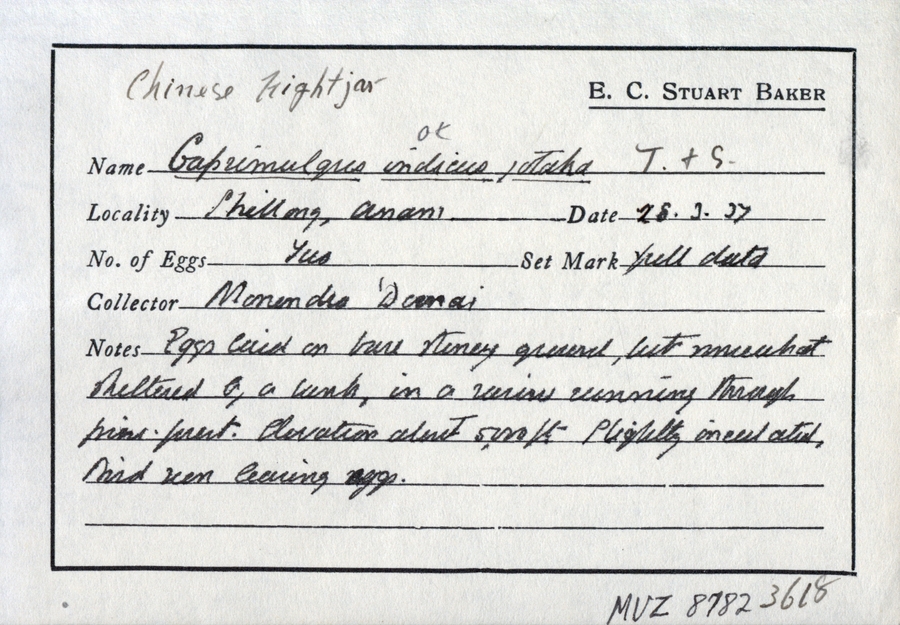 Chinese Nightjar
E. C. STUART BAKER
OK
Name Caprimulgus indicus jotaka J. + S.
Locality Shillong, Assam Date 28. 3. 37
No. of Eggs Two Set Mark full data
Collector Monendra
Notes Eggs laid on bare stoney ground, but somewhat
sheltered by a bank, in a ravine running through
pine-forest. Elevation about 5,000 ft Slightly incubated,
Bird seen leaving eggs.
MVZ 8782 3618